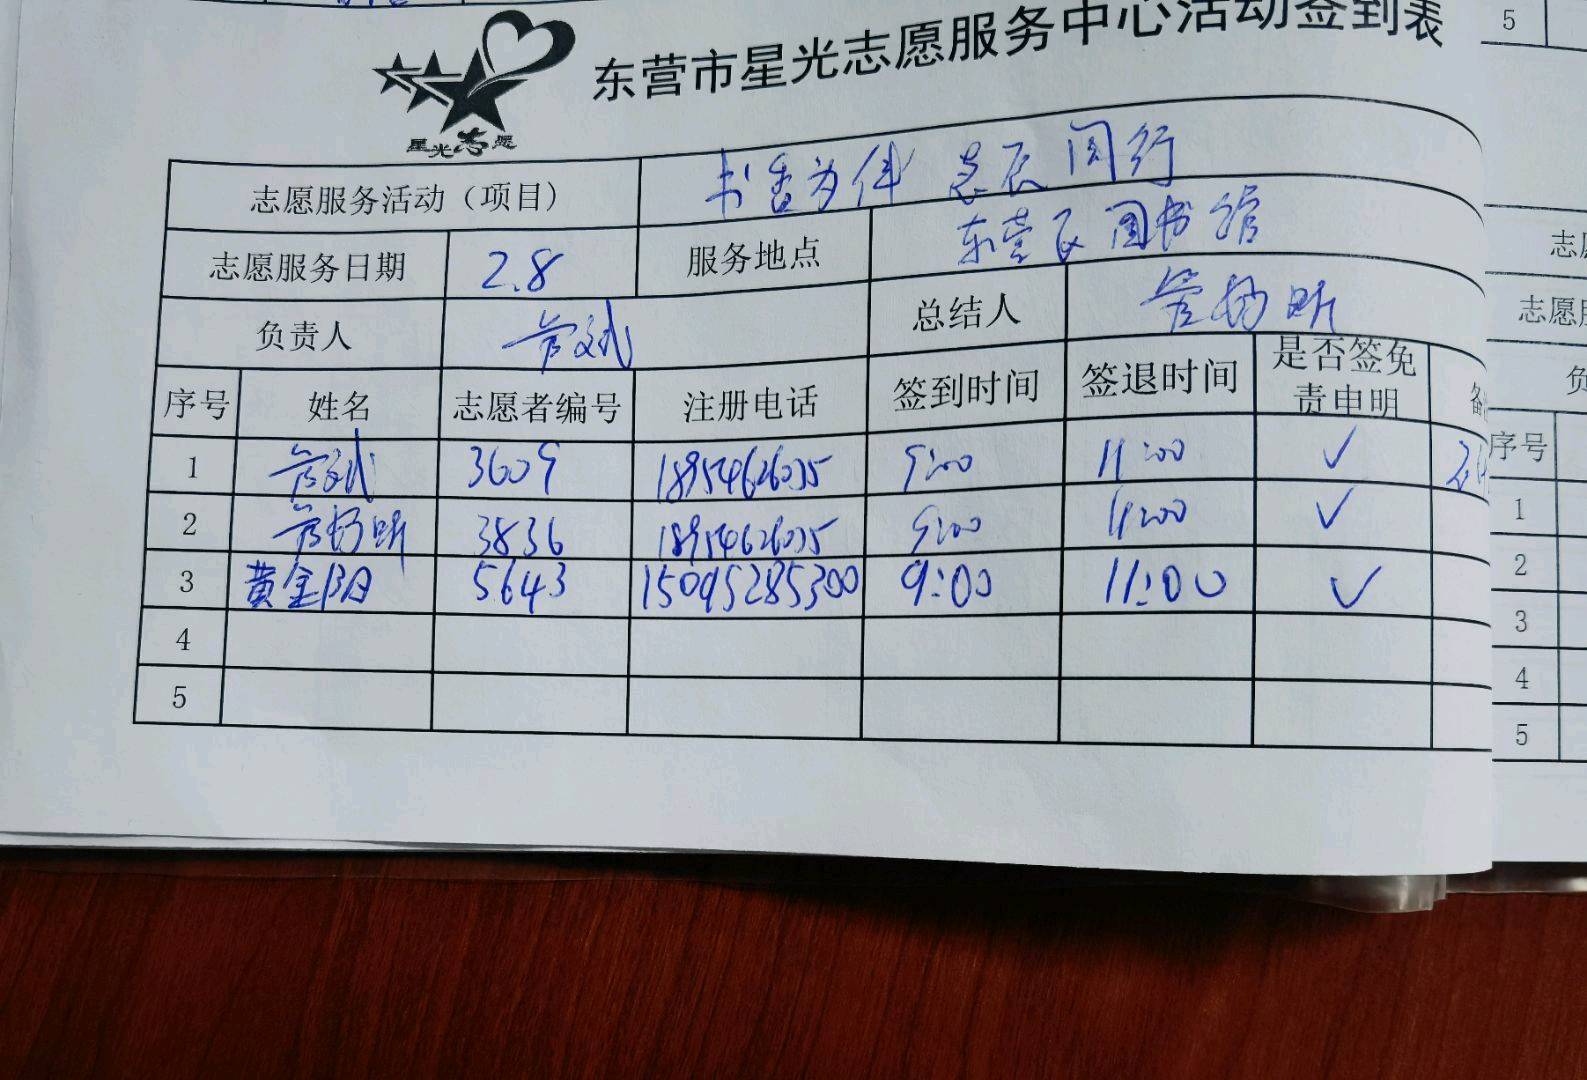 东营市星光志愿服务中心活动签到表
星光志愿
志愿服务活动（项目） 书香为伴 志愿同行
志愿服务日期 2.8 服务地点 东营区图书馆
负责人 总结人
序号 姓名 志愿者编号 注册电话 签到时间 签退时间 是否签免责申明
1 3609 18954626035 9:00 11:00 ✓
2 3836 18954626035 9:00 11:00 ✓
3 黄金阳 5643 15095285300 9:00 11:00 ✓
4
5
5
序号
1
2
3
4
5